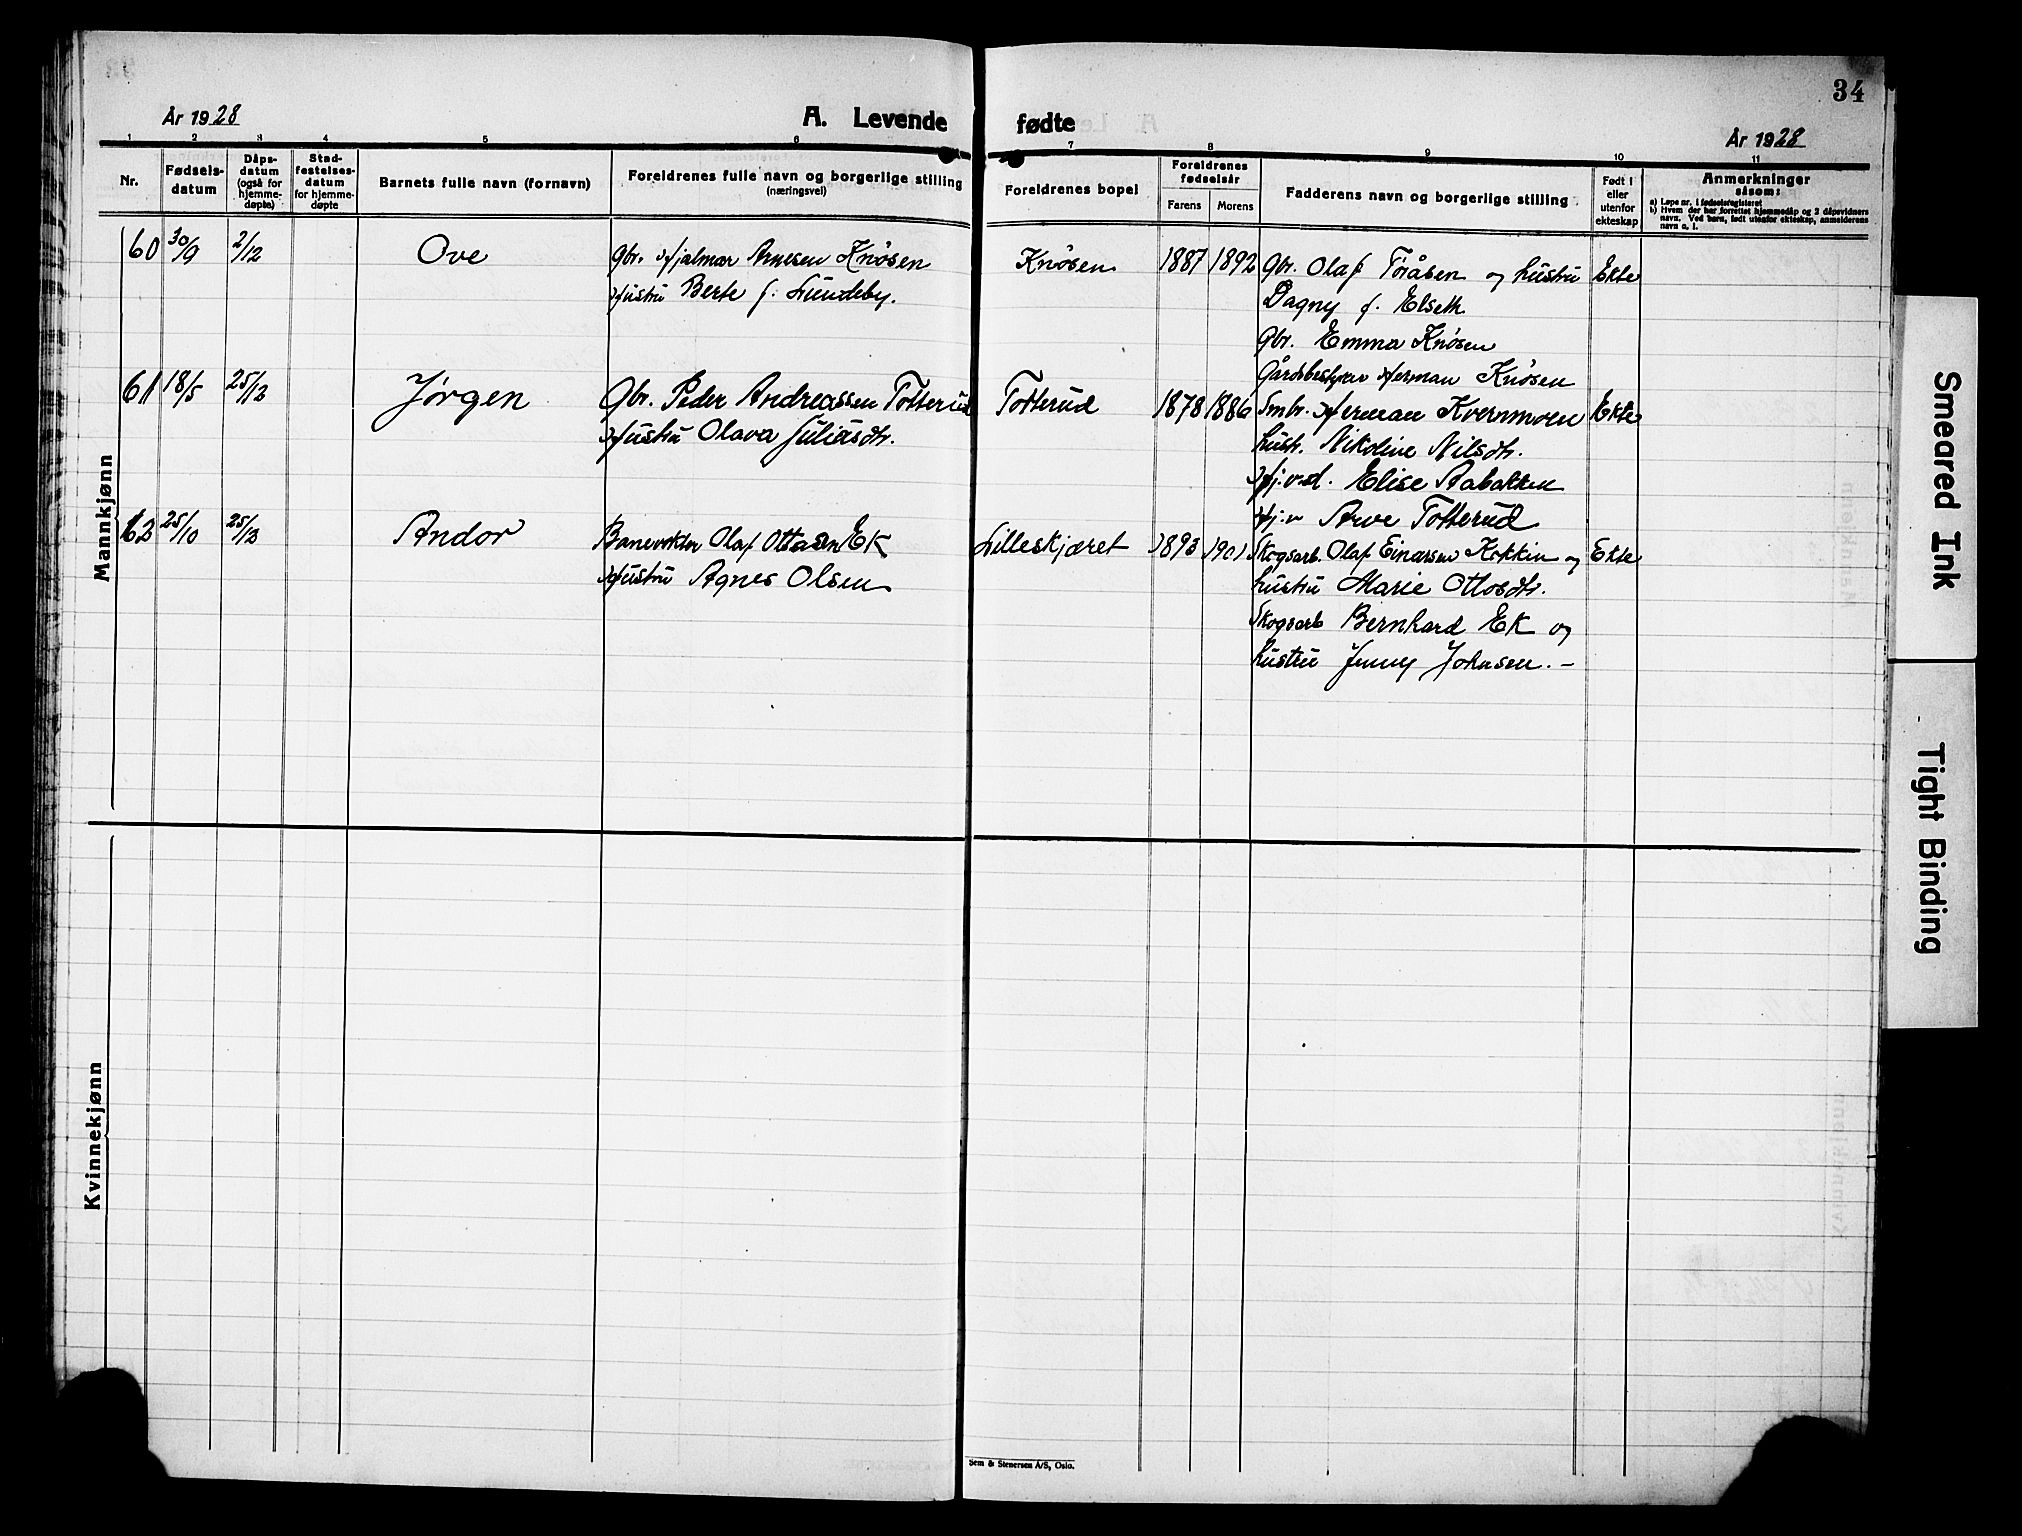 34
År 1928
A. Levende fødte
År 1928
1 2 3 4 5 6 7 8 9 10 11
Nr.
Fødsels-
datum
Dåps-
datum
(også for
hjemme-
døpte)
Stad-
festelses-
datum
for hjemme-
døpte
Barnets fulle navn (fornavn)
Foreldrenes fulle navn og borgerlige stilling
(næringsvei)
Foreldrenes bopel
Foreldrenes
fødselsår
Farens Morens
Fadderens navn og borgerlige stilling
Født i
eller
utenfor
ekteskap
Anmerkninger
såsom:
a) Løpe nr. i fødselsregisteret
b) Hvem der har forrettet hjemmedåp og 2 dåpsvidners
navn. Ved barn, født utenfor ekteskap, anmelderens
navn o. l.
Mannkjønn
60 30/9 2/12 Ove
Gbr. Hjalmar Arnesen Knøsen
Hustru Berte f. Lundeby.
Knøsen 1887 1892
Gbr. Olaf Toråsen og hustru
Dagny f. Elseth
Gbr. Emma Knøsen
Gårdsbestyrer Herman Knøsen
Ekte
61 18/5 25/12 Jørgen
Gbr. Peder Andreassen Totterud
Hustru Olava Juliusdtr.
Totterud 1878 1886
Smbr. Herman Kvernmoen
hustr. Nikoline Nilsdtr.
Hj.v.d. Elise Aabakken
Hj.v Arve Totterud
Ekte
62 25/10 25/12 Andor
Banevokter Olaf Ottosen Ek
Hustru Agnes Olsen
Lilleskjæret 1893 1901
Skogsarb. Olaf Einarsen Kokkin og
hustru Marie Ottosdtr.
Skogsarb Bernhard Ek og
hustru Jenny Johnsen. –
Ekte
Kvinnekjønn
Sem & Stenersen A/S, Oslo.
Smeared Ink
Tight Binding